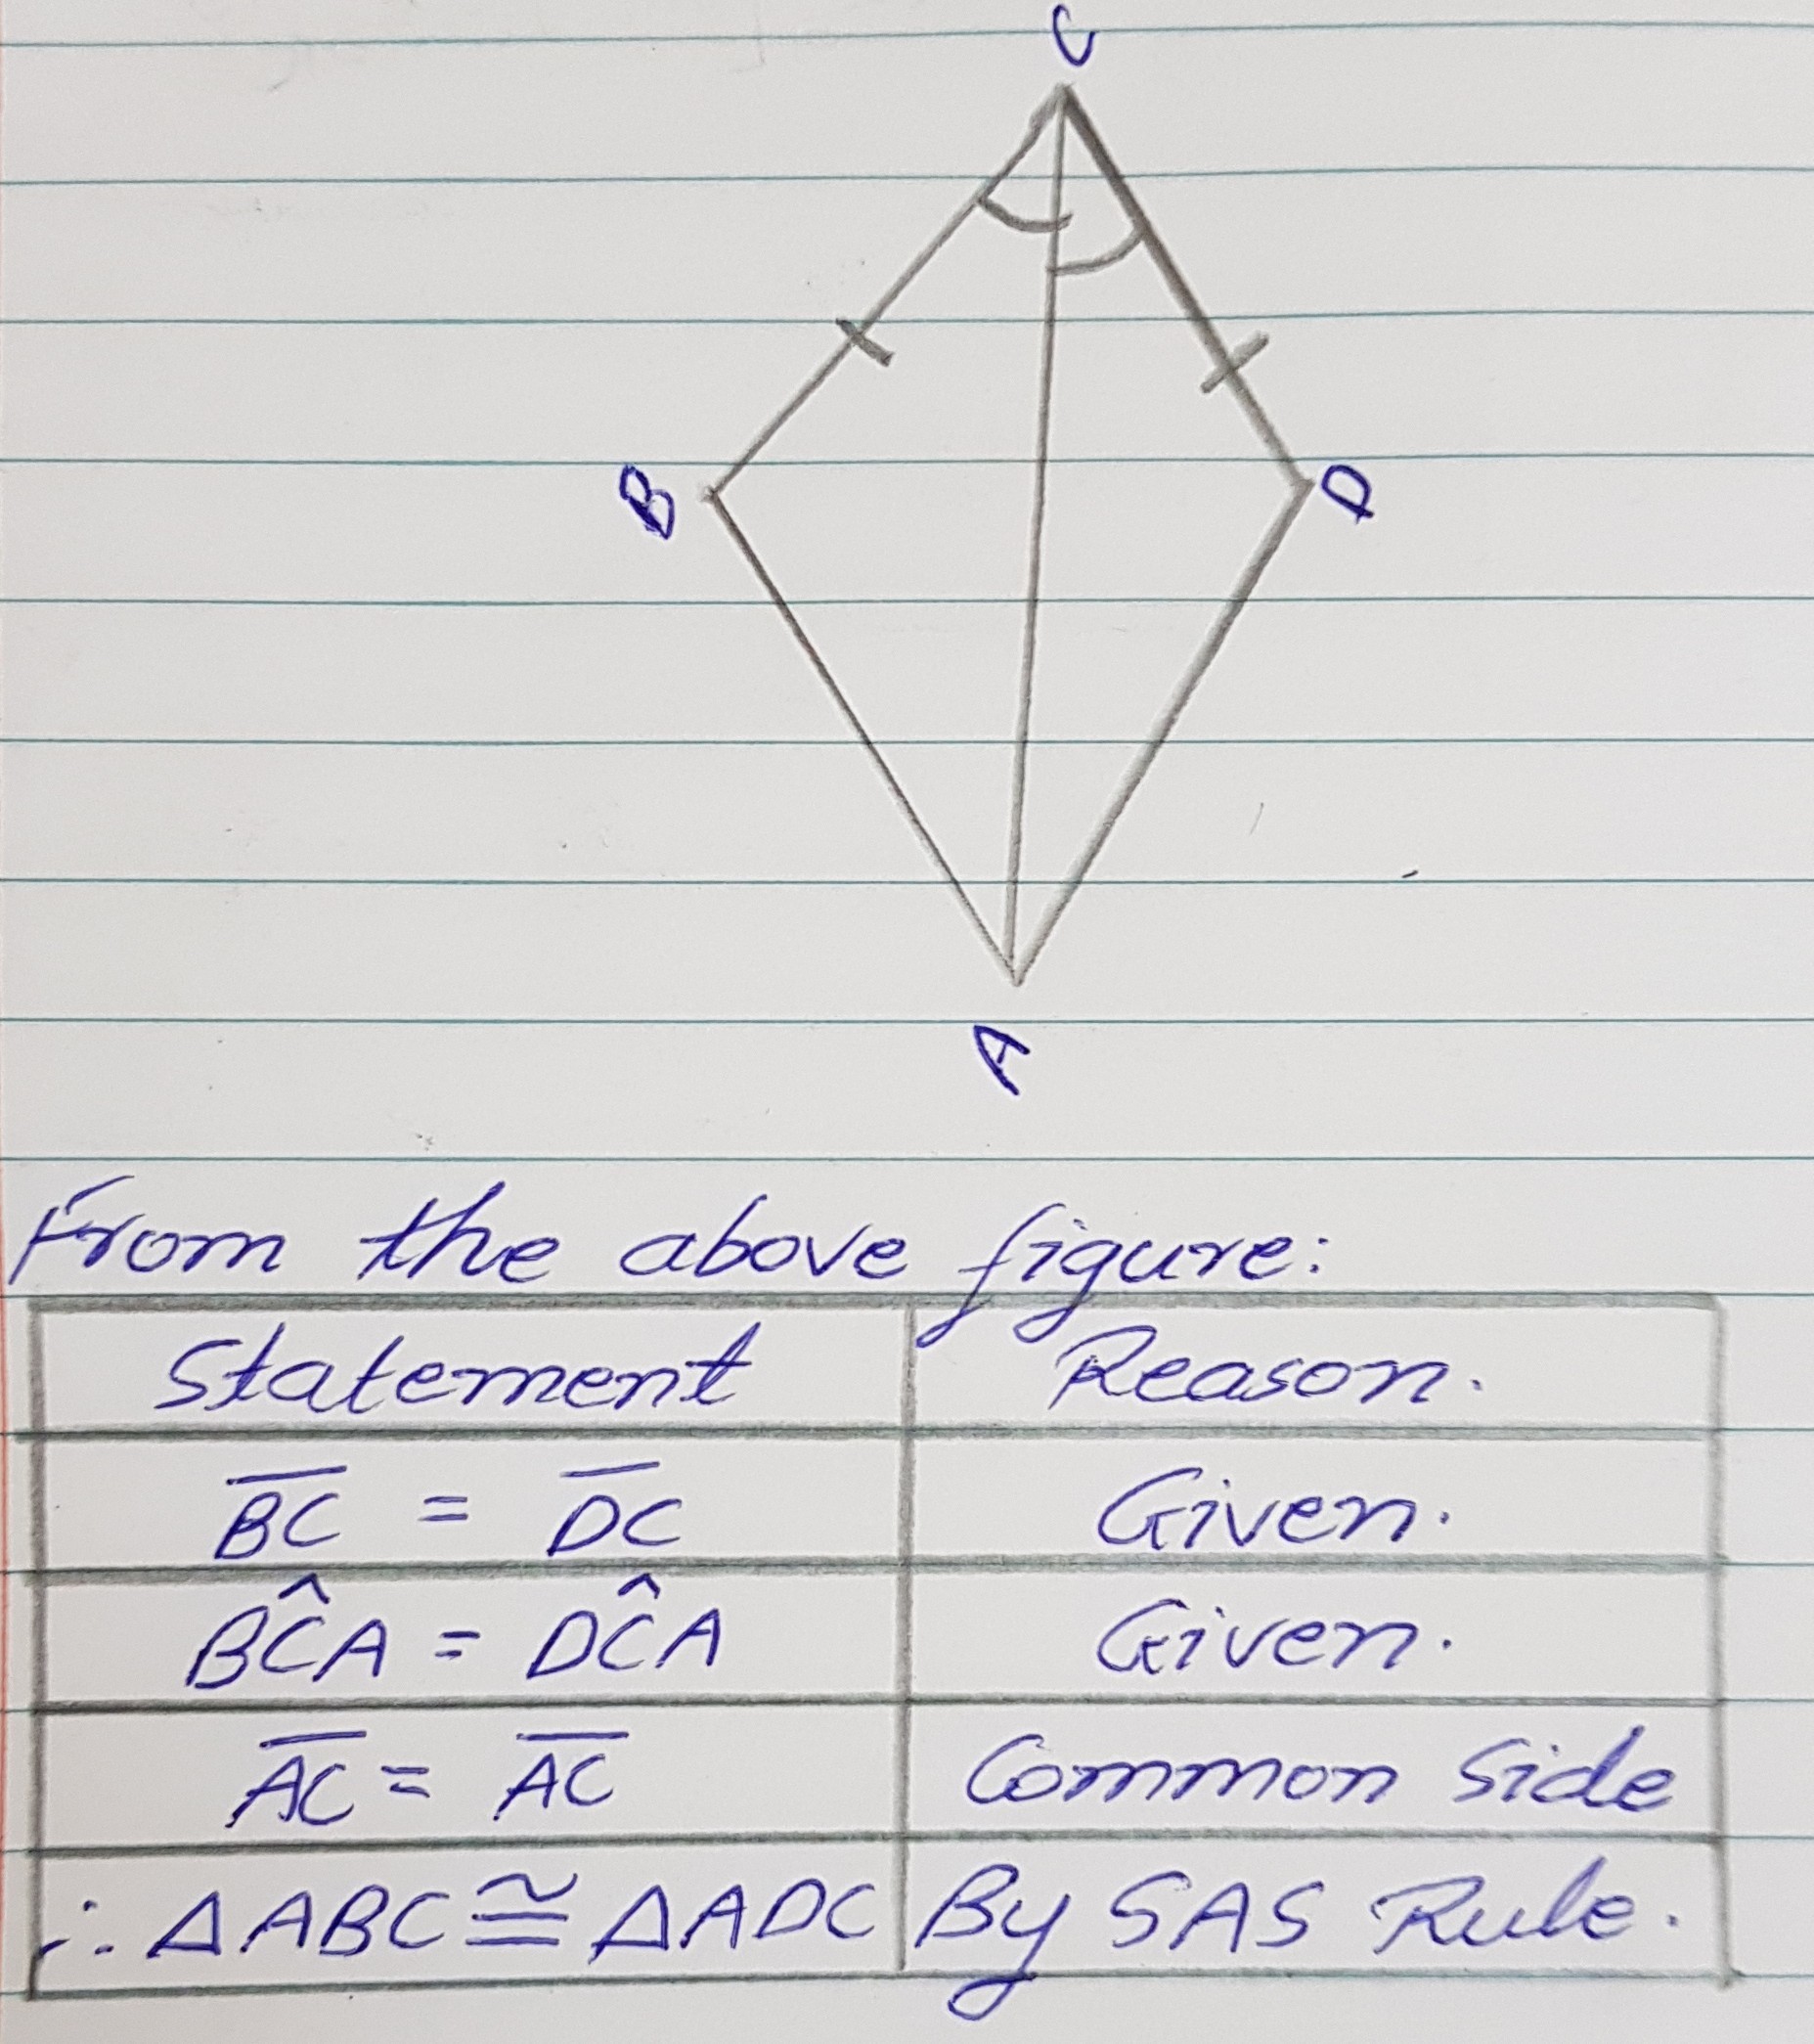 C
B
D
A
From the above figure:
Statement Reason.
B̅C̅ = D̅C̅ Given.
BĈA = DĈA Given.
A̅C̅ = A̅C̅ Common Side
∴ △ABC ≅ △ADC By SAS Rule.